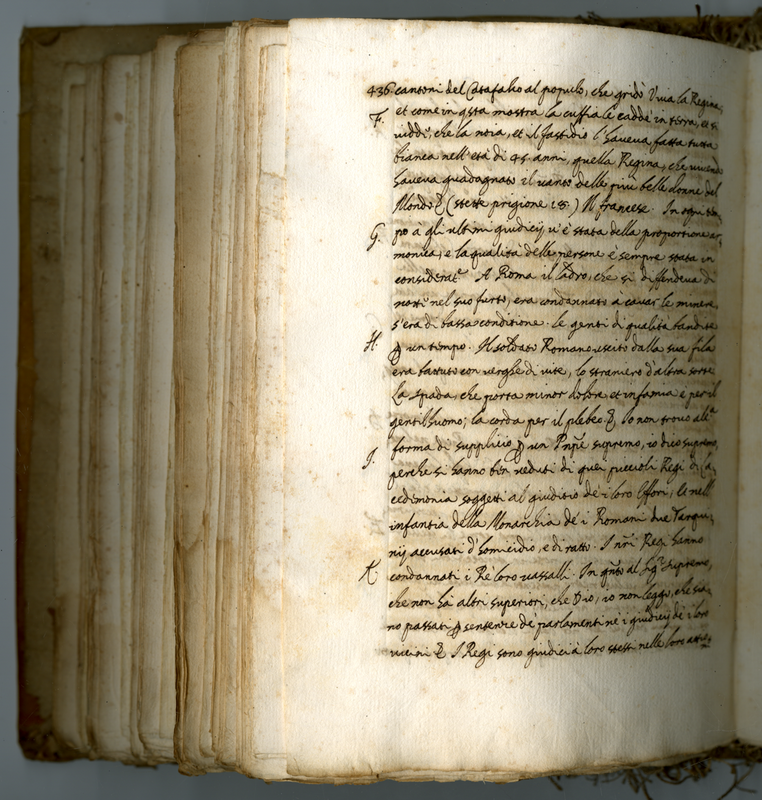 436 cantoni del Catafalco al populo, che gridò Viva la Regina,
F. et come in qsta mostra la cuffia le cadde in terra, et si
viddi, che la noia, et il fastidio l'haueua fatta tutta
bianca nell'età di 45 anni, quella Regina, che viuendo
haueua guadagnato il vanto delle più belle donne del
Mondo & (stette prigione 18.) Il francese. In ogni tem,
G. po à gli ultimi giudicij u'è stata della proportione ar,
monica, e la qualità delle persone è sempre stata in
considerat.e A Roma il ladro, che si diffendeua di
notte nel suo furto, era condannato a cauar le minere,
s'era di bassa conditione. le genti di qualità bandite
H. ꝑ un tempo. Il soldato Romano uscito dalla sua fila
era battuto con verghe di vite, lo straniero d'altra sorte
La spada, che porta minor dolore et infamia è per il
gentilhuomo, la corda per il plebeo. & Io non trovo alc.a
forma di supplicio ꝑ un Pnpe supremo, io dico supremo,
I. perche si hanno ben veduti di quei piccioli Regi di La,
cedimonia soggetti al giuditio de i loro Effori; le nell'
infantia della Monarchia de i Romani due Tarqui,
nij accusati d'homicidio, e di ratto. I nri Regi hanno
K. condannati i Rè loro vassalli. In qnto al Sig.r Supremo,
che non hà altri superiori, che Dio, io non leggo, che sia,
no passati ꝑ sentenze de parlamenti nè i giudicij de i loro
vicini & I Regi sono giudici à loro stessi nelle loro